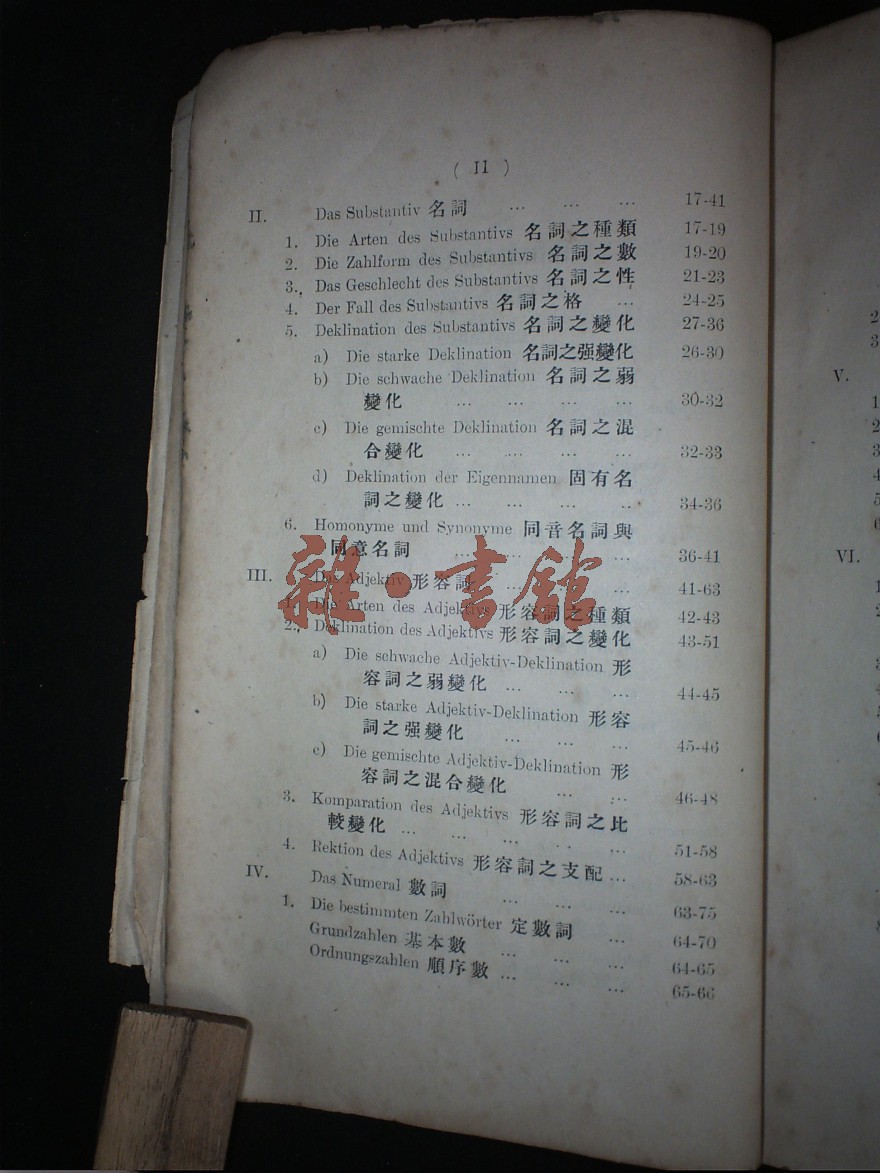 ( II )
II. Das Substantiv 名詞 ... ... ... 17-41
1. Die Arten des Substantivs 名詞之種類 17-19
2. Die Zahlform des Substantivs 名詞之數 19-20
3. Das Geschlecht des Substantivs 名詞之性 21-23
4. Der Fall des Substantivs 名詞之格 ... 24-25
5. Deklination des Substantivs 名詞之變化 27-36
a) Die starke Deklination 名詞之强變化 26-30
b) Die schwache Deklination 名詞之弱
變化 ... ... ... ... 30-32
c) Die gemischte Deklination 名詞之混
合變化 ... ... ... ... 32-33
d) Deklination der Eigennamen 固有名
詞之變化 ... ... ... .. 34-36
6. Homonyme und Synonyme 同音名詞與
同意名詞 ... ... ... ... 36-41
III. Das Adjektiv 形容詞 ... ... ... 41-63
1. Die Arten des Adjektivs 形容詞之種類 42-43
2. Deklination des Adjektivs 形容詞之變化 43-51
a) Die schwache Adjektiv-Deklination 形
容詞之弱變化 ... ... ... 44-45
b) Die starke Adjektiv-Deklination 形容
詞之强變化 ... ... ... 45-46
c) Die gemischte Adjektiv-Deklination 形
容詞之混合變化 ... ... 46-48
3. Komparation des Adjektivs 形容詞之比
較變化 ... ... ... .. ... 51-58
4. Rektion des Adjektivs 形容詞之支配 ... 58-63
IV. Das Numeral 數詞 ... ... ... 63-75
1. Die bestimmten Zahlwörter 定數詞 ... 64-70
Grundzahlen 基本數 ... ... ... 64-65
Ordnungszahlen 順序數 ... ... ... 65-66
雜·書館
2
3
V.
1
2
3
4
5
6
VI.
1
2
3